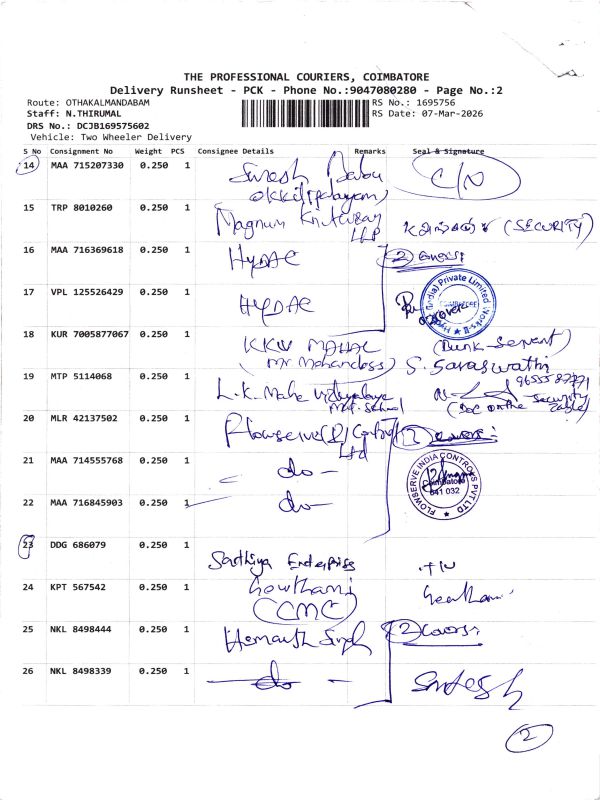 THE PROFESSIONAL COURIERS, COIMBATORE
Delivery Runsheet - PCK - Phone No.:9047080280 - Page No.:2
Route: OTHAKALMANDABAM
RS No.: 1695756
Staff: N.THIRUMAL
RS Date: 07-Mar-2026
DRS No.: DCJB169575602
Vehicle: Two Wheeler Delivery
S No Consignment No Weight PCS Consignee Details Remarks Seal & Signature
14 MAA 715207330 0.250 1 Suresh Babu C/N
15 TRP 8010260 0.250 1 Magnum LLP (SECURITY)
16 MAA 716369618 0.250 1 HYDAC 2
17 VPL 125526429 0.250 1 HYDAC
(India) Private Limited
18 KUR 7005877067 0.250 1 KKV MAHAL
(Mr Mohandoss) S. Saraswathi
19 MTP 5114068 0.250 1 L.K. Maha Vidyalaya
Mat. School
(DOC on the Security table)
20 MLR 42137502 0.250 1 Flowserve (I) Control Ltd 2 covers
21 MAA 714555768 0.250 1 do
FLOWSERVE INDIA CONTROLS PVT LTD
Coimbatore
641 032
22 MAA 716845903 0.250 1 do
23 DDG 686079 0.250 1 Sathiya Enterprises
24 KPT 567542 0.250 1 Gowthami
(CCMC)
25 NKL 8498444 0.250 1 Hemanth Singh 2 covers
26 NKL 8498339 0.250 1 do Santosh
2